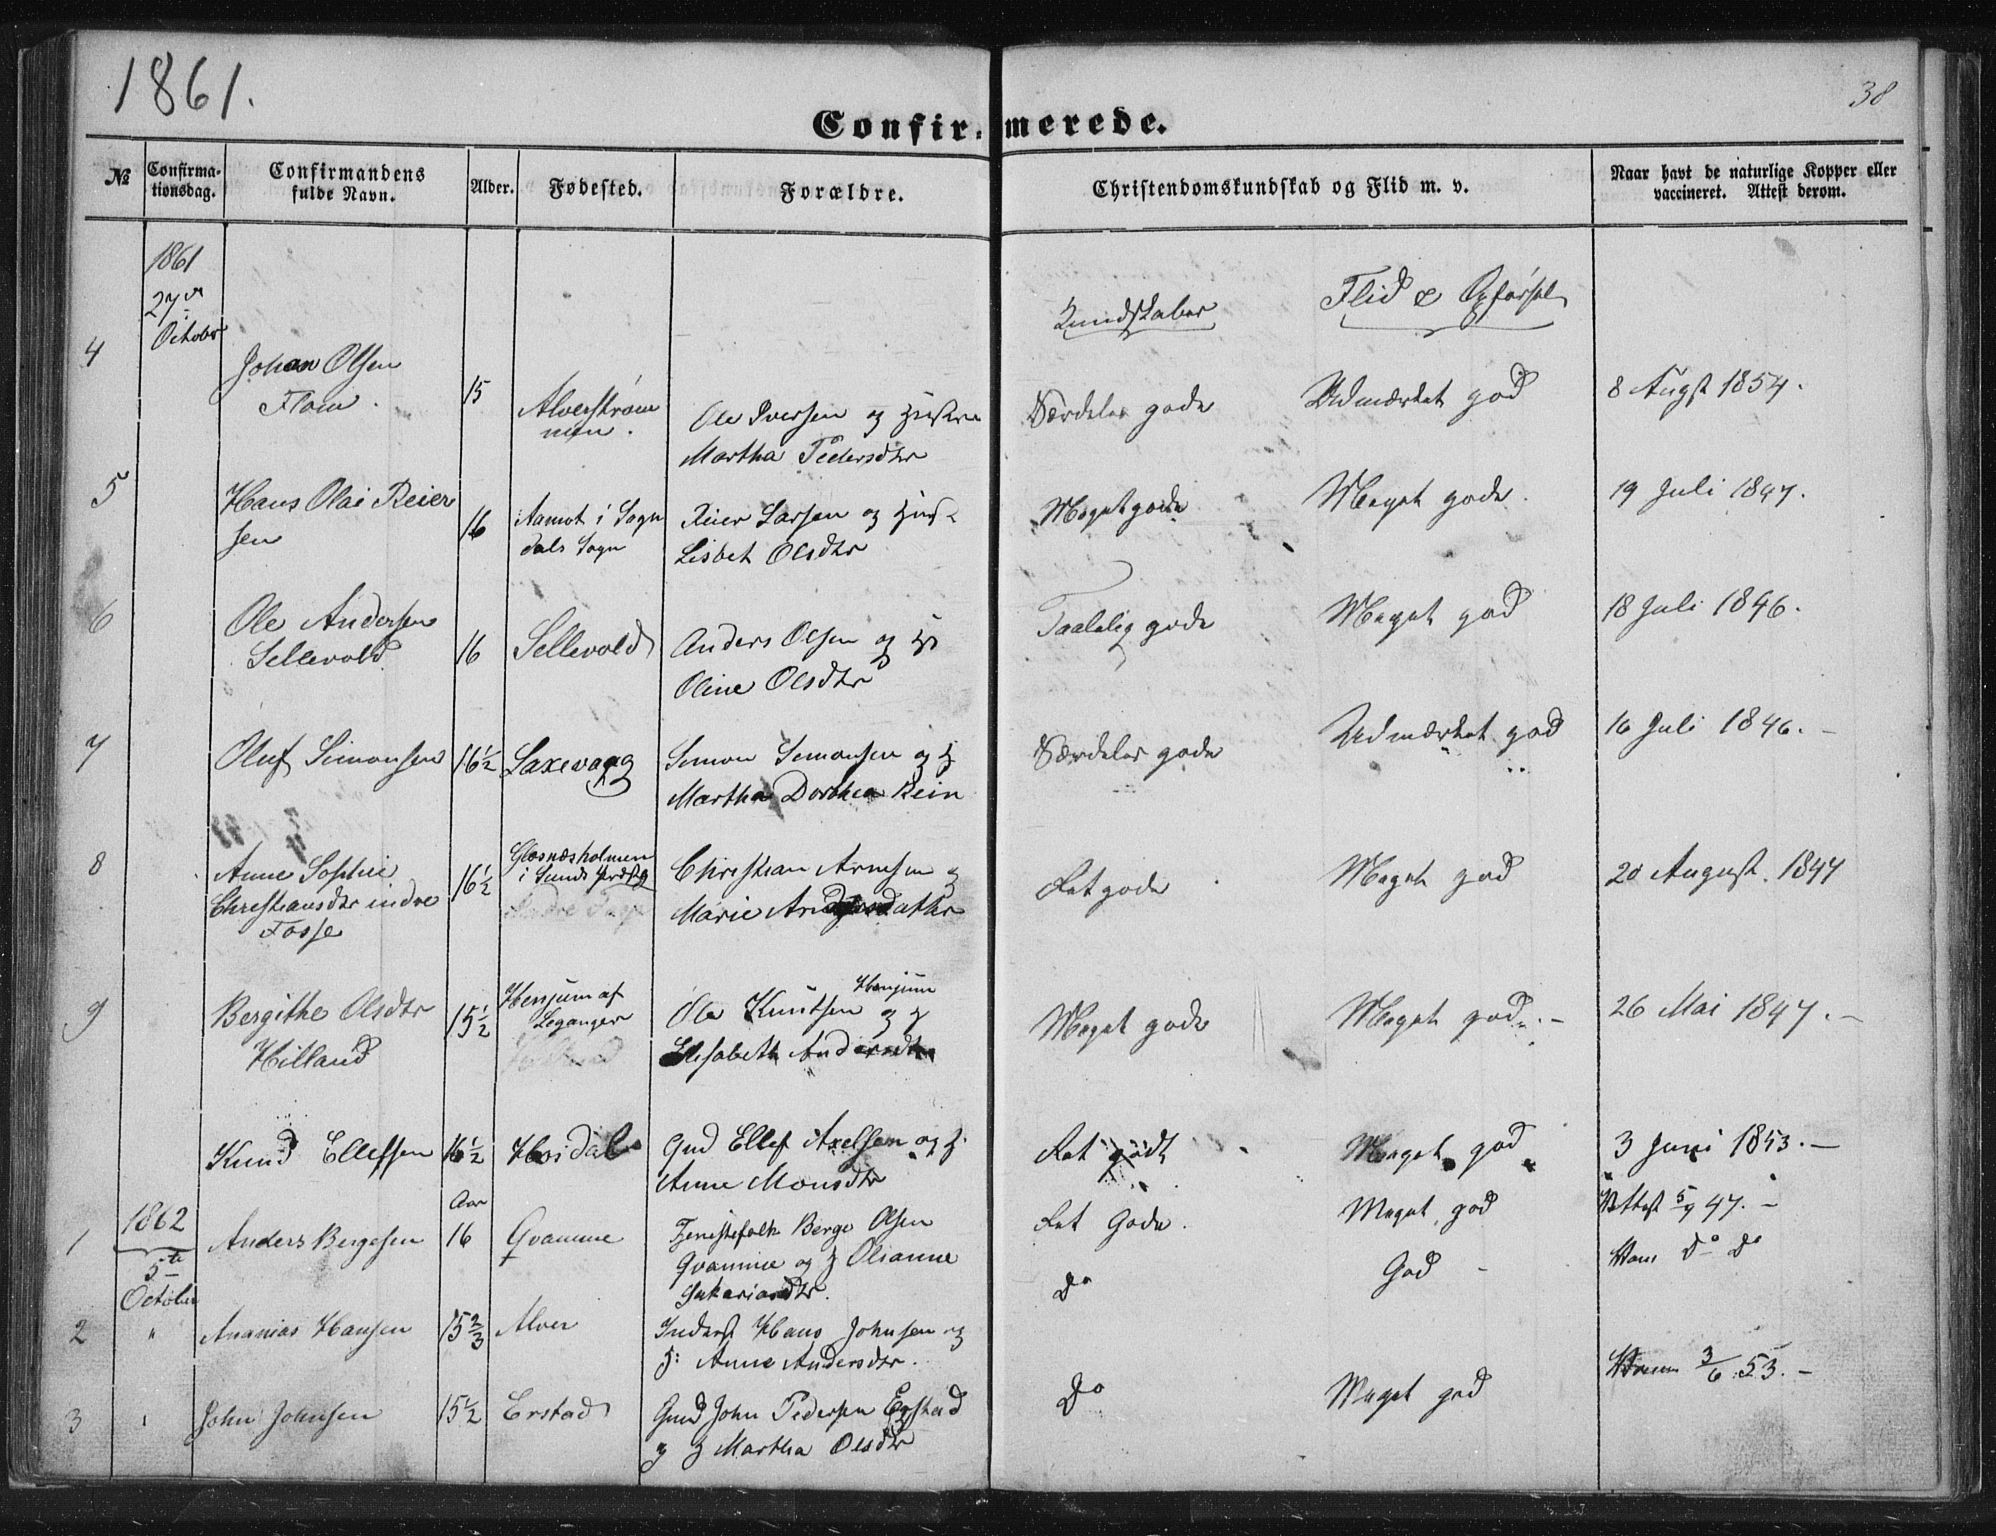 1861.
38
Confirmerede.
№
Confirmationsdag.
Confirmandens fulde Navn.
Alder.
Fødested.
Forældre.
Christendomskundskab og Flid m. v.
Naar havt de naturlige Kopper eller vaccineret. Attest derom.
1861
27de
October
Kundskaber
Flid & Opførsel
4
Johan Olsen
Flom.
15
Alverstrøm
men.
Ole Iversen og Hustru
Martha Pedersdtr
Særdeles gode
Udmærket god
8 Augst 1854.
5
Hans Olai Reier
sen
16
Aamot i Sogn
dals Sogn
Reier Larsen og Hust
Lisbet Olsdtr
Meget gode
Meget gode.
19 Juli 1847.
6
Ole Andersen
Sellevold
16
Sellevold
Anders Olsen og H
Oline Olsdtr
Taalelig gode
Meget god
18 Juli 1846.
7
Oluf Simonsen
16½
Saxevaag
Simon Simonsen og H
Martha Dorthea Rein
Særdeles gode
Udmærket god
16 Juli 1846. –
8
Anne Sophie
Christiansdtr indre
Fosse
16½
Glæsnæsholmen
i Sunds Præstg
Christian Arnesen og
Marie Andersdatter
Ret gode
Meget god
20 August. 1847
9
Bergithe Olsdtr
Hilland
15½
Henjum af
Leganger
Ole Knutsen Henjum
og H
Elisabeth Andersdtr
Meget gode
Meget god. –
26 Mai 1847. –
Knud Ellefsen
16½
Hosdal
Gmd Ellef Axelsen og H.
Anne Monsdtr
Ret godt
Meget god
3 Juni 1853. –
1862
5te
October
Aar
1
Anders Bergesen
16
Qvamme
Tjenestefolk Berge Olsen
Qvamme og H Olianne
Sakariasdtr.
Ret Gode.
Meget god
Attest 5/9 47. –
2
"
Ananias Hansen
15⅔
Alver
Inderst Hans Johnsen og
H: Anne Andersdtr.
Do
God –
Do Do
3
John Johnsen
15½
Erstad
Gmd John Pedersen Erstad
og H Martha Olsdtr
Do
Meget god
3/6 53. –